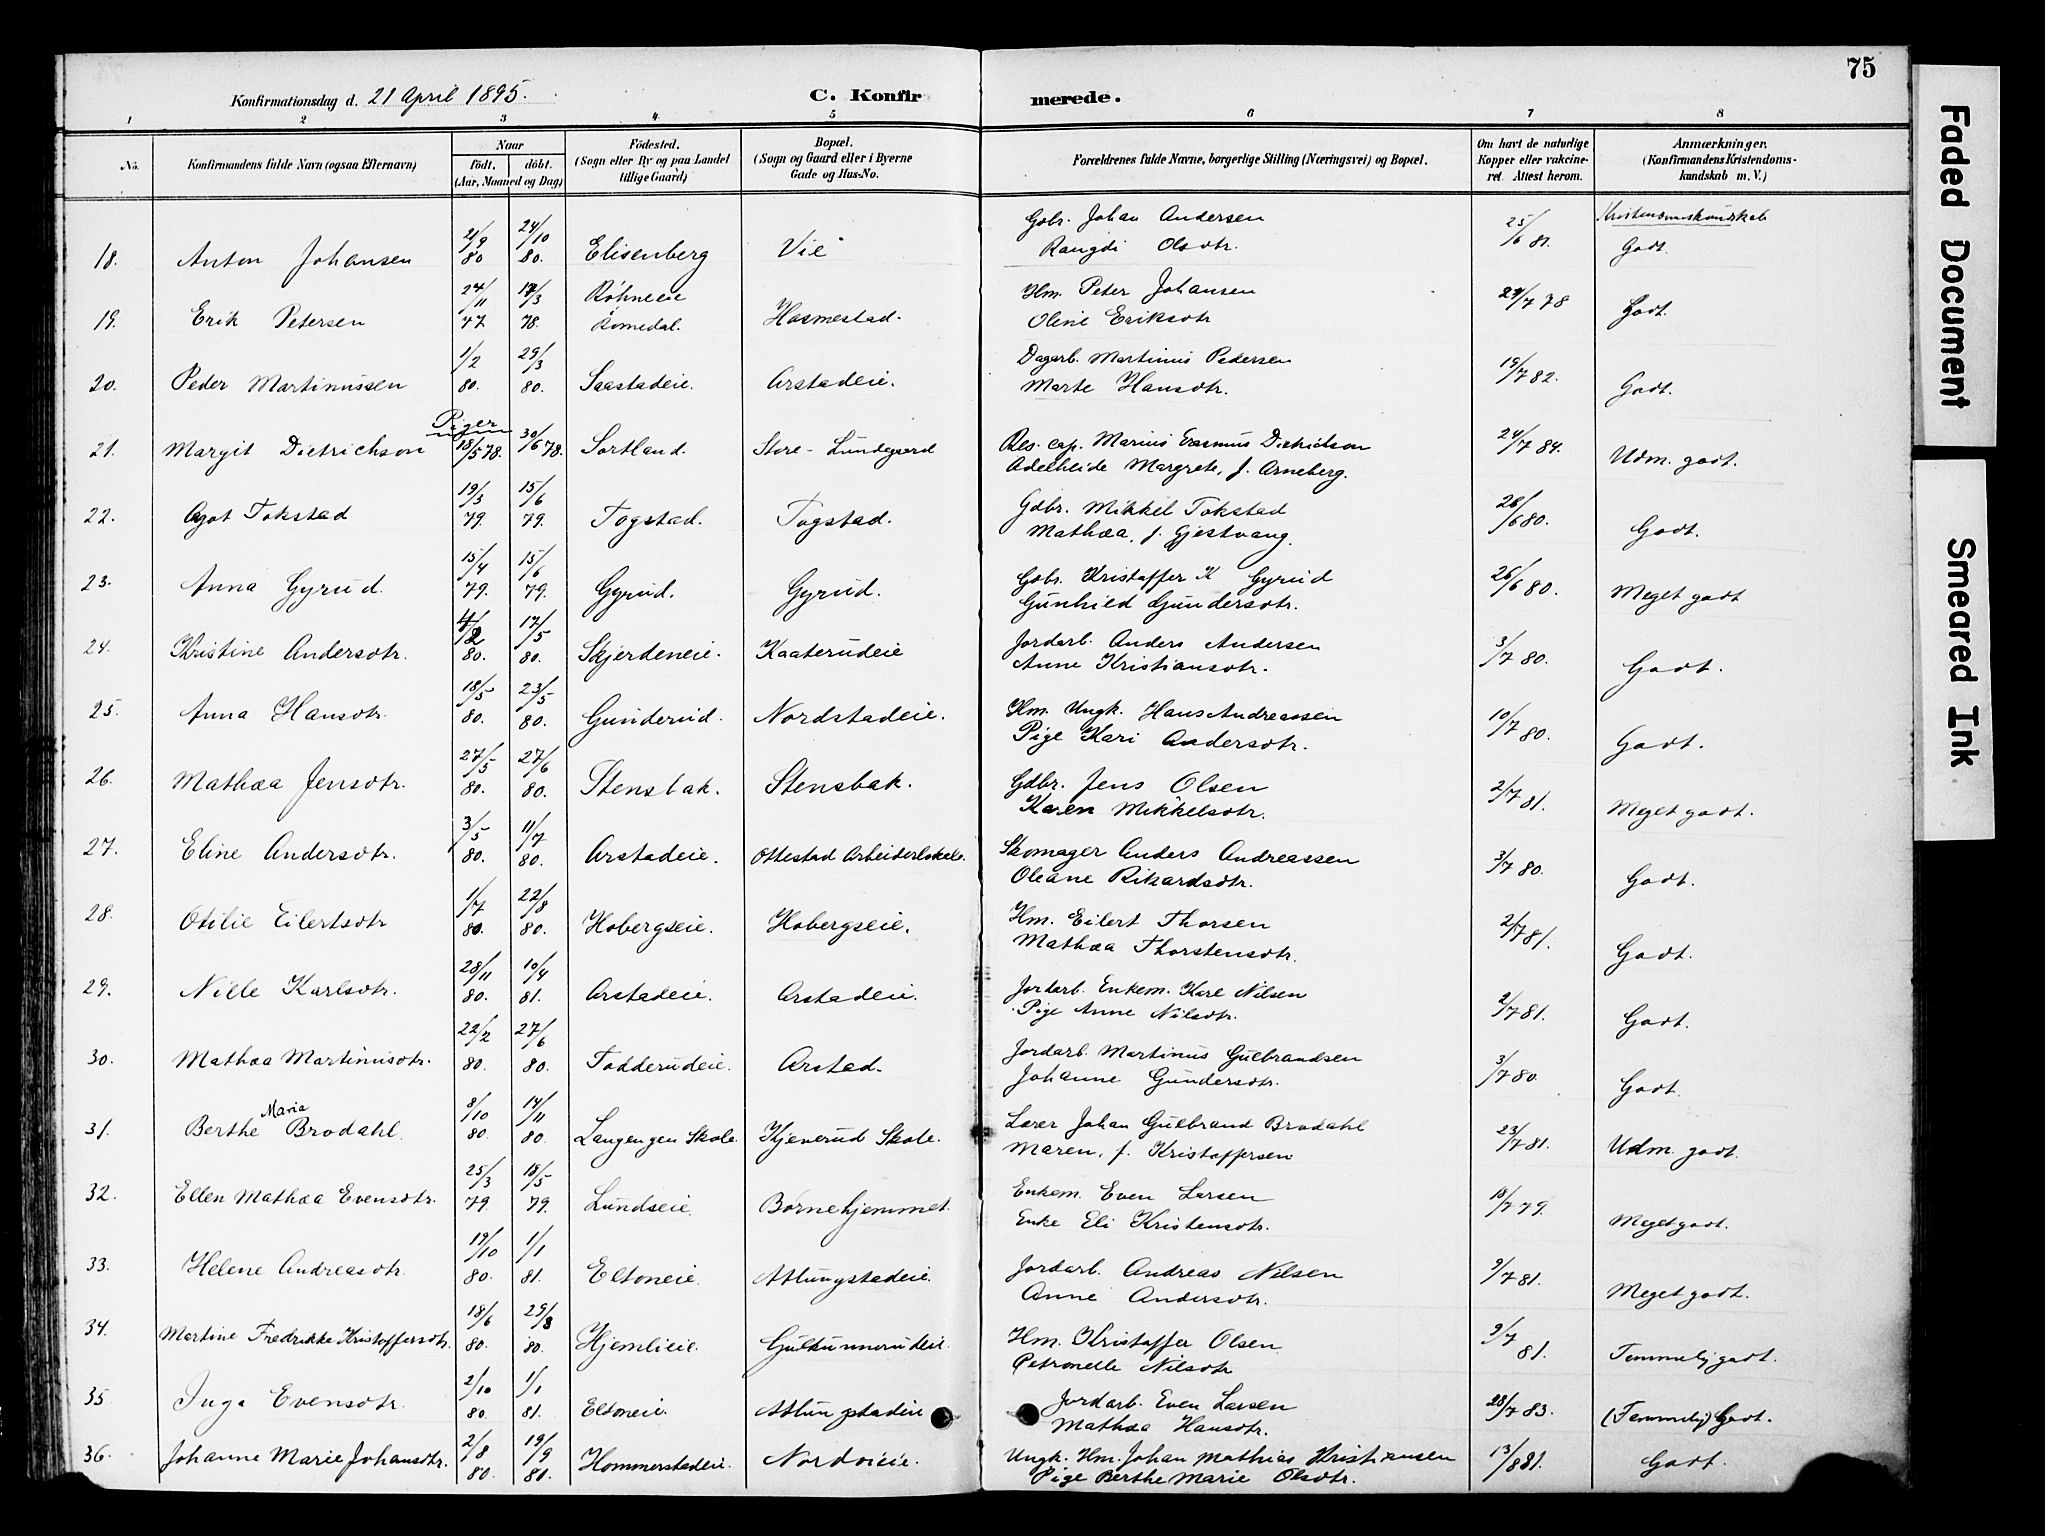 75
Konfirmationsdag d. 21 April 1895.
C. Konfirmerede.
1 2 3 4 5 6 7 8
No. Konfirmandens fulde Navn (ogsaa Efternavn) Naar födt. döbt. (Aar, Maaned og Dag) Födested. (Sogn eller By og paa Landet tillige Gaard) Bopæl. (Sogn og Gaard eller i Byerne Gade og Hus-No. Forældrenes fulde Navne, borgerlige Stilling (Næringsvei) og Bopæl. Om havt de naturlige Kopper eller vakcineret. Attest herom. Anmærkninger. (Konfirmandens Kristendomskundskab m. V.)
Kristendomskundskab
18. Anton Johansen 21/9 80 24/10 80. Elisenberg Vie Gbr. Johan Andersen
Rangdi Olsdtr. 25/6 81. Godt.
19. Erik Petersen 24/11 77 17/3 78. Röhneeie Romedal. Hosmestad. Hm. Peter Johansen
Oline Eriksdtr 27/7 78 Godt.
20. Peder Martinussen 1/2 80. 29/3 80. Saastadeie. Arstadeie. Dagarb. Martinus Pedersen
Marte Hansdtr. 19/7 82. Godt.
Piger
21. Margit Dietrichson 18/5 78. 30/6 78. Sortland. Store-Lundgaard Res. cap. Marius Erasmus Dietrichson
Adelheide Margrete, f. Arneberg. 24/7 84. Udm. godt.
22. Agot Tokstad 19/3 79. 15/6 79. Togstad. Togstad. Gdbr. Mikkel Tokstad
Mathea, f. Gjestvang. 26/6 80. Godt.
23. Anna Gyrud. 15/4 79. 15/6 79. Gyrud. Gyrud. Gbr. Kristoffer K Gyrud
Gunhild Gundersdtr. 26/6 80. Meget godt
24. Kristine Andersdtr. 4/2 80. 17/5 80. Skjerdeneie. Kaaterudeie Jordarb. Anders Andersen
Anne Kristiansdtr. 3/7 80. Godt.
25. Anna Hansdtr. 18/5 80. 23/5 80. Gunderud. Nordstadeie. Hm. Ungk. Hans Andreassen
Pige Kari Andersdtr. 10/7 80. Godt.
26. Mathea Jensdtr. 27/5 80. 27/6 80. Stensbak. Stensbak. Gdbr. Jens Olsen
Karen Mikkelsdtr. 2/7 81. Meget godt.
27. Eline Andersdtr. 3/5 80. 11/7 80. Arstadeie. Ottestad Arbeiderlokale. Skomager Anders Andreassen
Oleane Rikardsdtr. 3/7 80. Godt.
28. Otilie Eilertsdtr 1/7 80. 22/8 80. Hobergseie. Hobergseie. Hm. Eilert Thorsen
Mathea Thorstensdtr. 2/7 81. Godt.
29. Nille Karlsdtr. 28/11 80. 10/4 81. Arstadeie. Arstadeie. Jordarb. Enkem. Karl Nilsen
Pige Anne Nilsdtr. 2/7 81. Godt.
30. Mathea Martinusdtr. 22/2 80. 27/6 80. Todderudeie. Arstad. Jordarb. Martinus Gulbrandsen
Johanne Gundersdtr. 3/7 80. Godt.
31. Berthe Maria Brodahl 8/10 80. 14/11 80. Langengen Skole. Kjenerud Skole. Lærer Johan Gulbrand Brodahl
Maren, f. Kristoffersen 23/7 81. Udm. godt.
32. Ellen Mathea Evensdtr. 25/3 79. 18/5 79. Lundseie. Bornehjemmet. Enkem. Even Larsen
Enke Eli Kristensdtr. 10/7 79. Meget godt.
33. Helene Andreasdtr. 19/10 80. 1/1 81. Eltoneie. Atlungstadeie. Jordarb. Andreas Nilsen
Anne Andersdtr. 9/7 81. Meget godt.
34. Martine Fredrikke Kristoffersdtr. 18/6 80. 29/8 80. Hjemlieie. Hm. Kristoffer Olsen
Petronelle Nilsdtr 9/7 81. Temmelig godt.
35 Inga Evensdtr. 2/10 80. 1/1 81. Eltoneie. Atlungstadeie Jordarb. Even Larsen
Mathea Hansdtr. 28/7 83. (Temmelig) Godt.
36. Johanne Marie Johansdtr. 2/8 80. 19/9 80. Hommerstadeie. Nordvieie. Ungk. Hm. Johan Mathias Kristiansen
Pige Berthe Marie Olsdtr. 13/8 81. Godt.
Faded Document
Smeared Ink